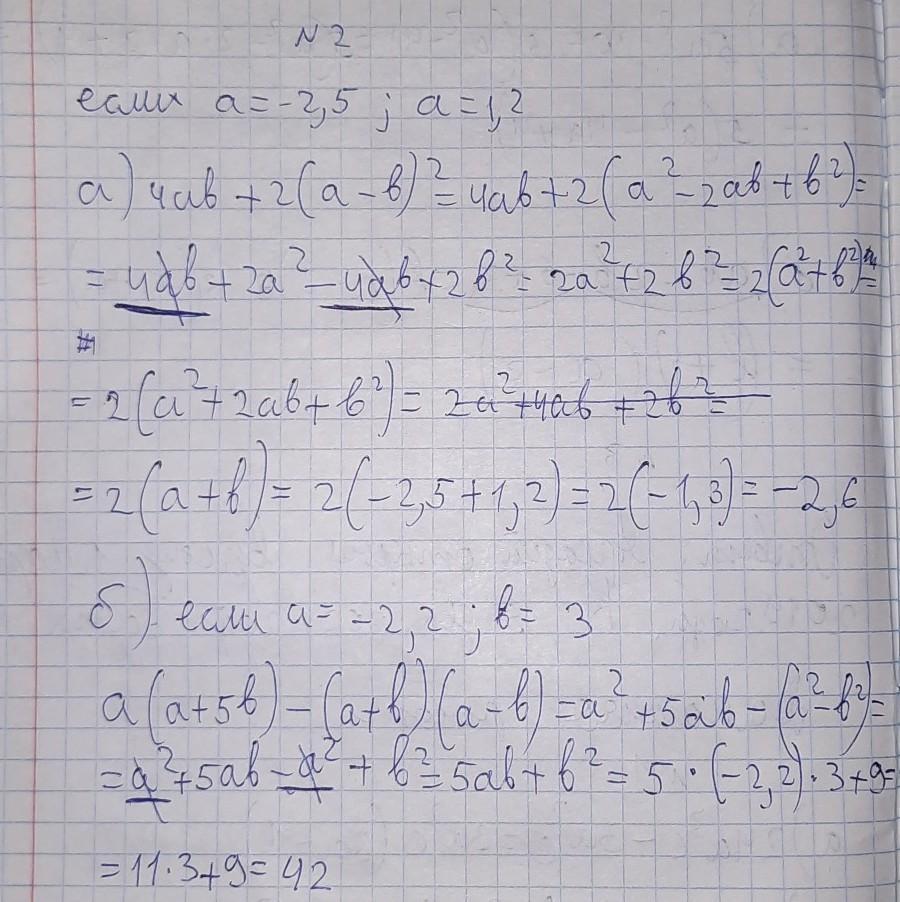 N 2
если a = -2,5 ; a = 1,2
а) 4ab + 2(a - b)² = 4ab + 2(a² - 2ab + b²) =
= 4ab + 2a² - 4ab + 2b² = 2a² + 2b² = 2(a² + b²) =
= 2(a² + 2ab + b²) = 2a² + 4ab + 2b² =
= 2(a + b) = 2(-2,5 + 1,2) = 2(-1,3) = -2,6
б) если a = -2,2 ; b = 3
a(a + 5b) - (a + b)(a - b) = a² + 5ab - (a² - b²) =
= a² + 5ab - a² + b² = 5ab + b² = 5 · (-2,2) · 3 + 9 =
= 11 · 3 + 9 = 42